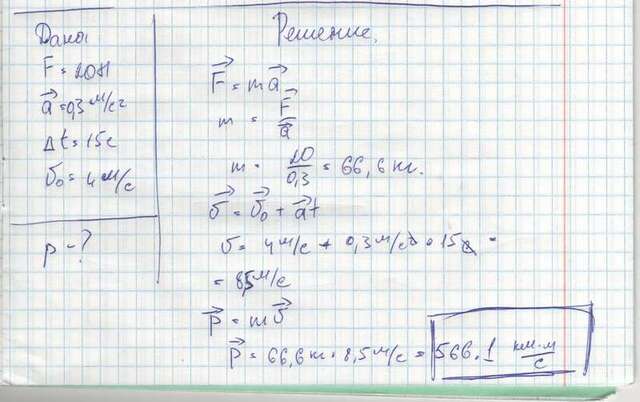 Дано
F = 20Н
a⃗ = 0,3 м/с²
Δt = 15 с
υ₀ = 4 м/с
p - ?
Решение.
F⃗ = m a⃗
m = F⃗/a⃗
m = 20/0,3 = 66,6 кг.
υ⃗ = υ⃗₀ + a⃗t
υ = 4 м/с + 0,3 м/с² • 15 с =
= 8,5 м/с
p⃗ = m υ⃗
p⃗ = 66,6 кг • 8,5 м/с = 566,1 кг•м/с